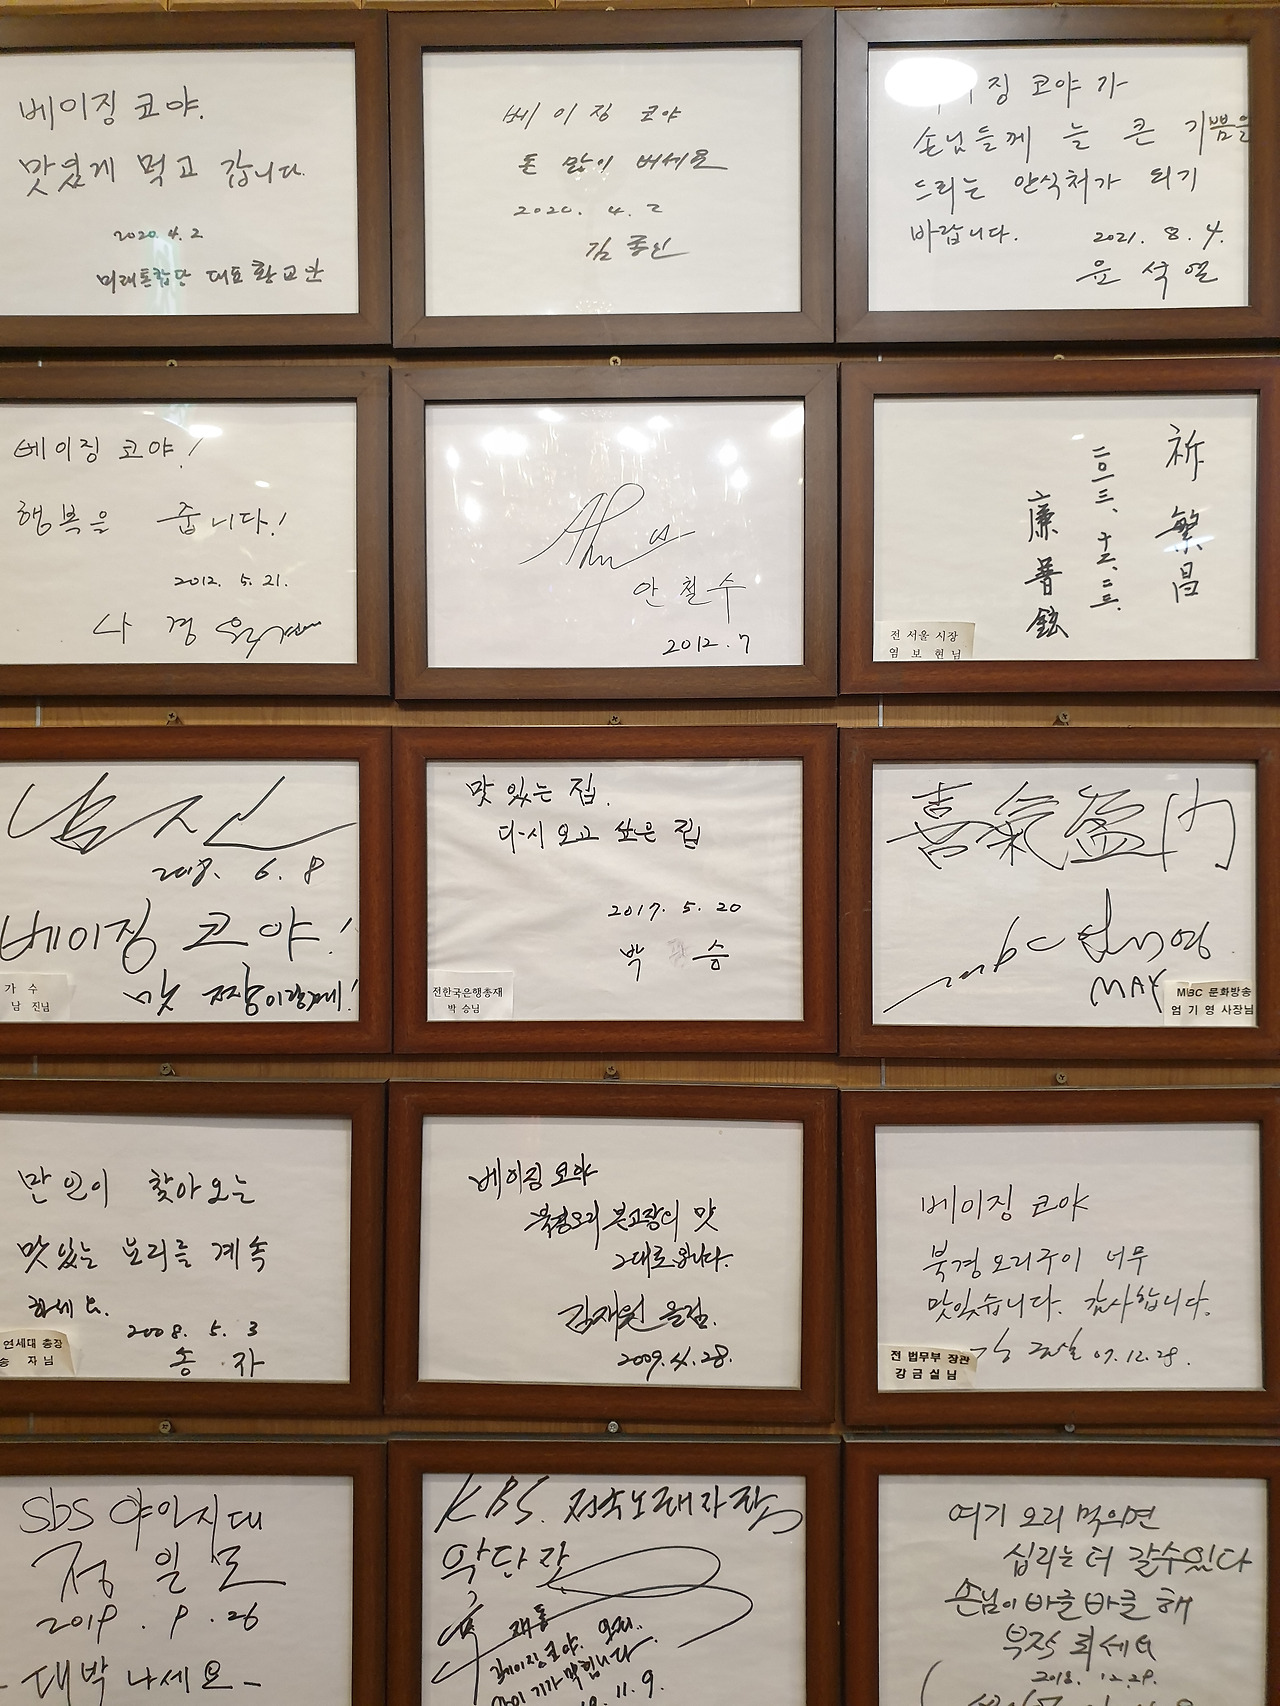 베이징 코야.
맛있게 먹고 갑니다.
2020. 4. 2
미래통합당 대표 황교안
베이징 코야
돈 많이 버세요
2020. 4. 2
김종인
이징 코야가
손님들께 늘 큰 기쁨을
드리는 안식처가 되기
바랍니다.
2021. 8. 4.
윤석열
베이징 코야!
행복을 줍니다!
2012. 5. 21.
나 경 원
안철수
2012. 7
祈 繁 昌
二○一三. 十二. 二三.
廉普鉉
전 서울 시장
염 보 현 님
남 진
2018. 6. 8
베이징 코야!
맛 짱이랑께!
가 수
남 진님
맛있는 집.
다시 오고 싶은 집
2017. 5. 20
박 승
전한국은행총재
박 승님
喜氣盈門
mbc 엄기영
MAY
MBC 문화방송
엄 기 영 사장님
만인이 찾아오는
맛있는 요리를 계속
하세요.
2008. 5. 3
송 자
연세대 총장
송 자 님
베이징 코야
북경오리 본고장의 맛
그대로입니다.
김재원 올림.
2009. 4. 28.
베이징 코야
북경 오리구이 너무
맛있습니다. 감사합니다.
강금실 07. 12. 28.
전 법무부 장관
강 금 실 님
SBS 야인시대
정 일 모
2019. 9. 26
대박 나세요-
KBS. 전국노래자랑
악단장
재동
베이징코야. 오리..
맛이 기가 막힙니다
11. 9.
여기 오리 먹으면
십리는 더 갈수있다
손님이 바글바글 해
부자 되세요
2018. 12. 29.